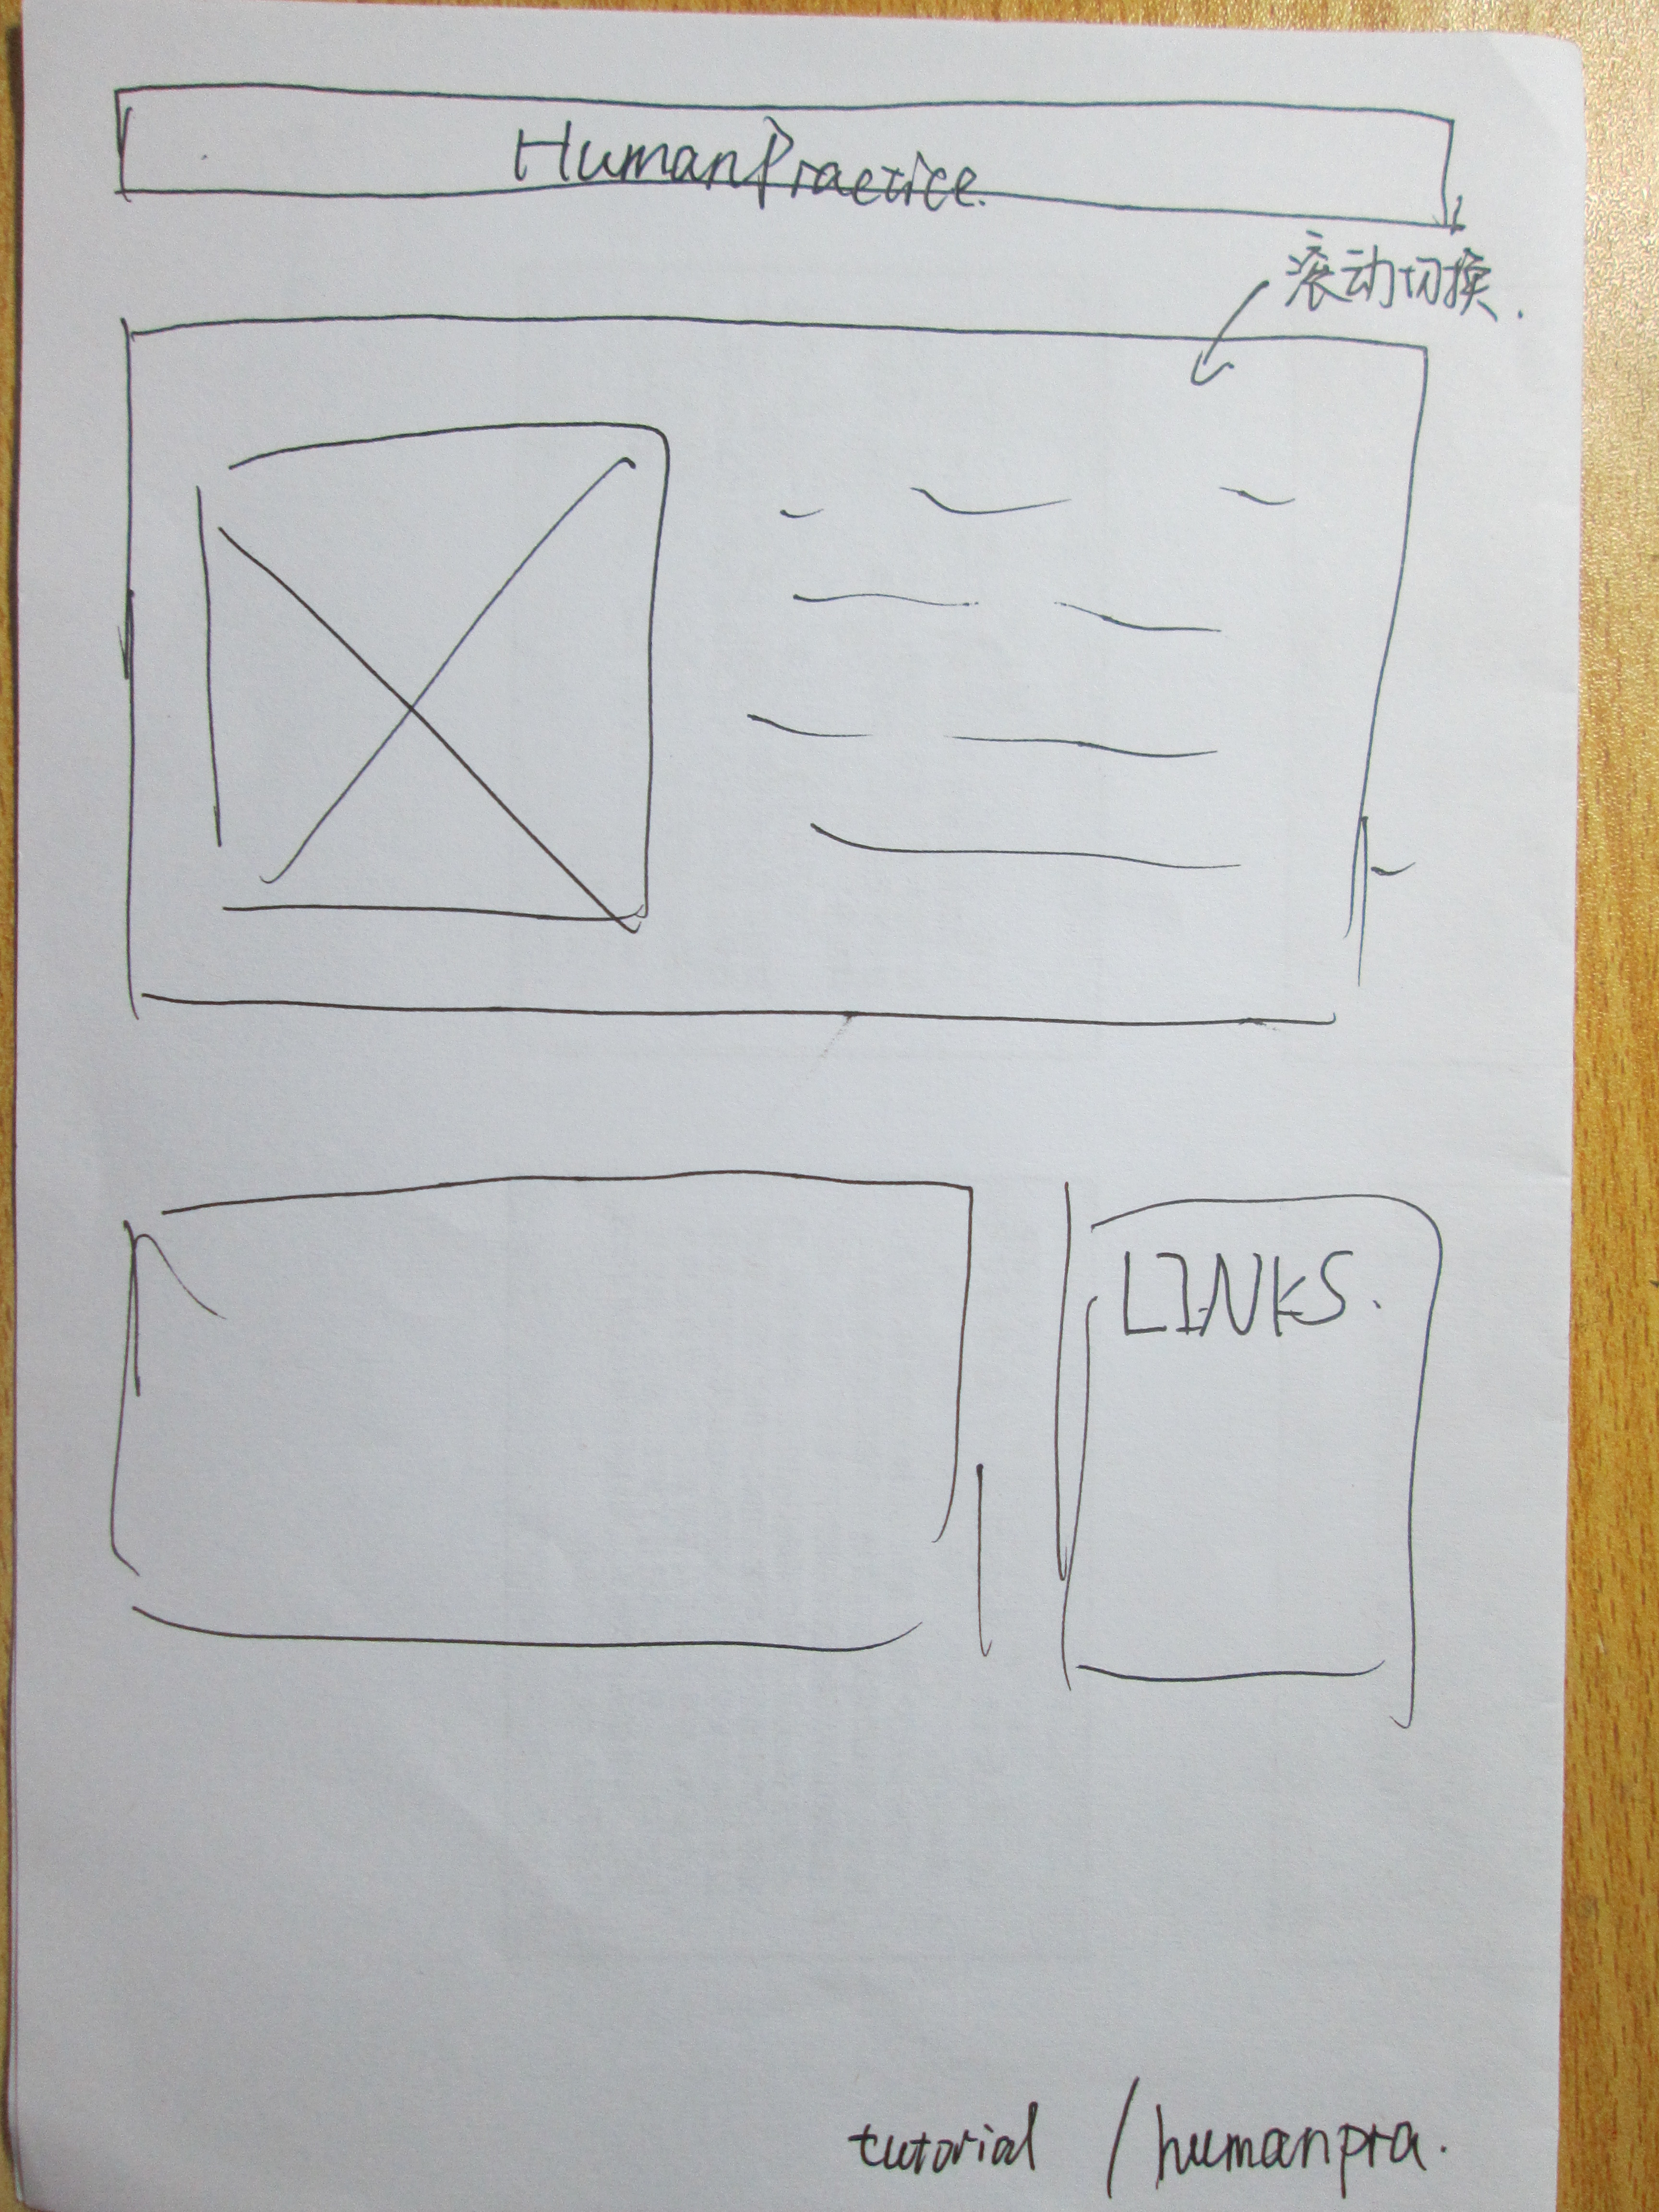 HumanPractice.
滚动切换.
LINKS.
tutorial / humanpra.